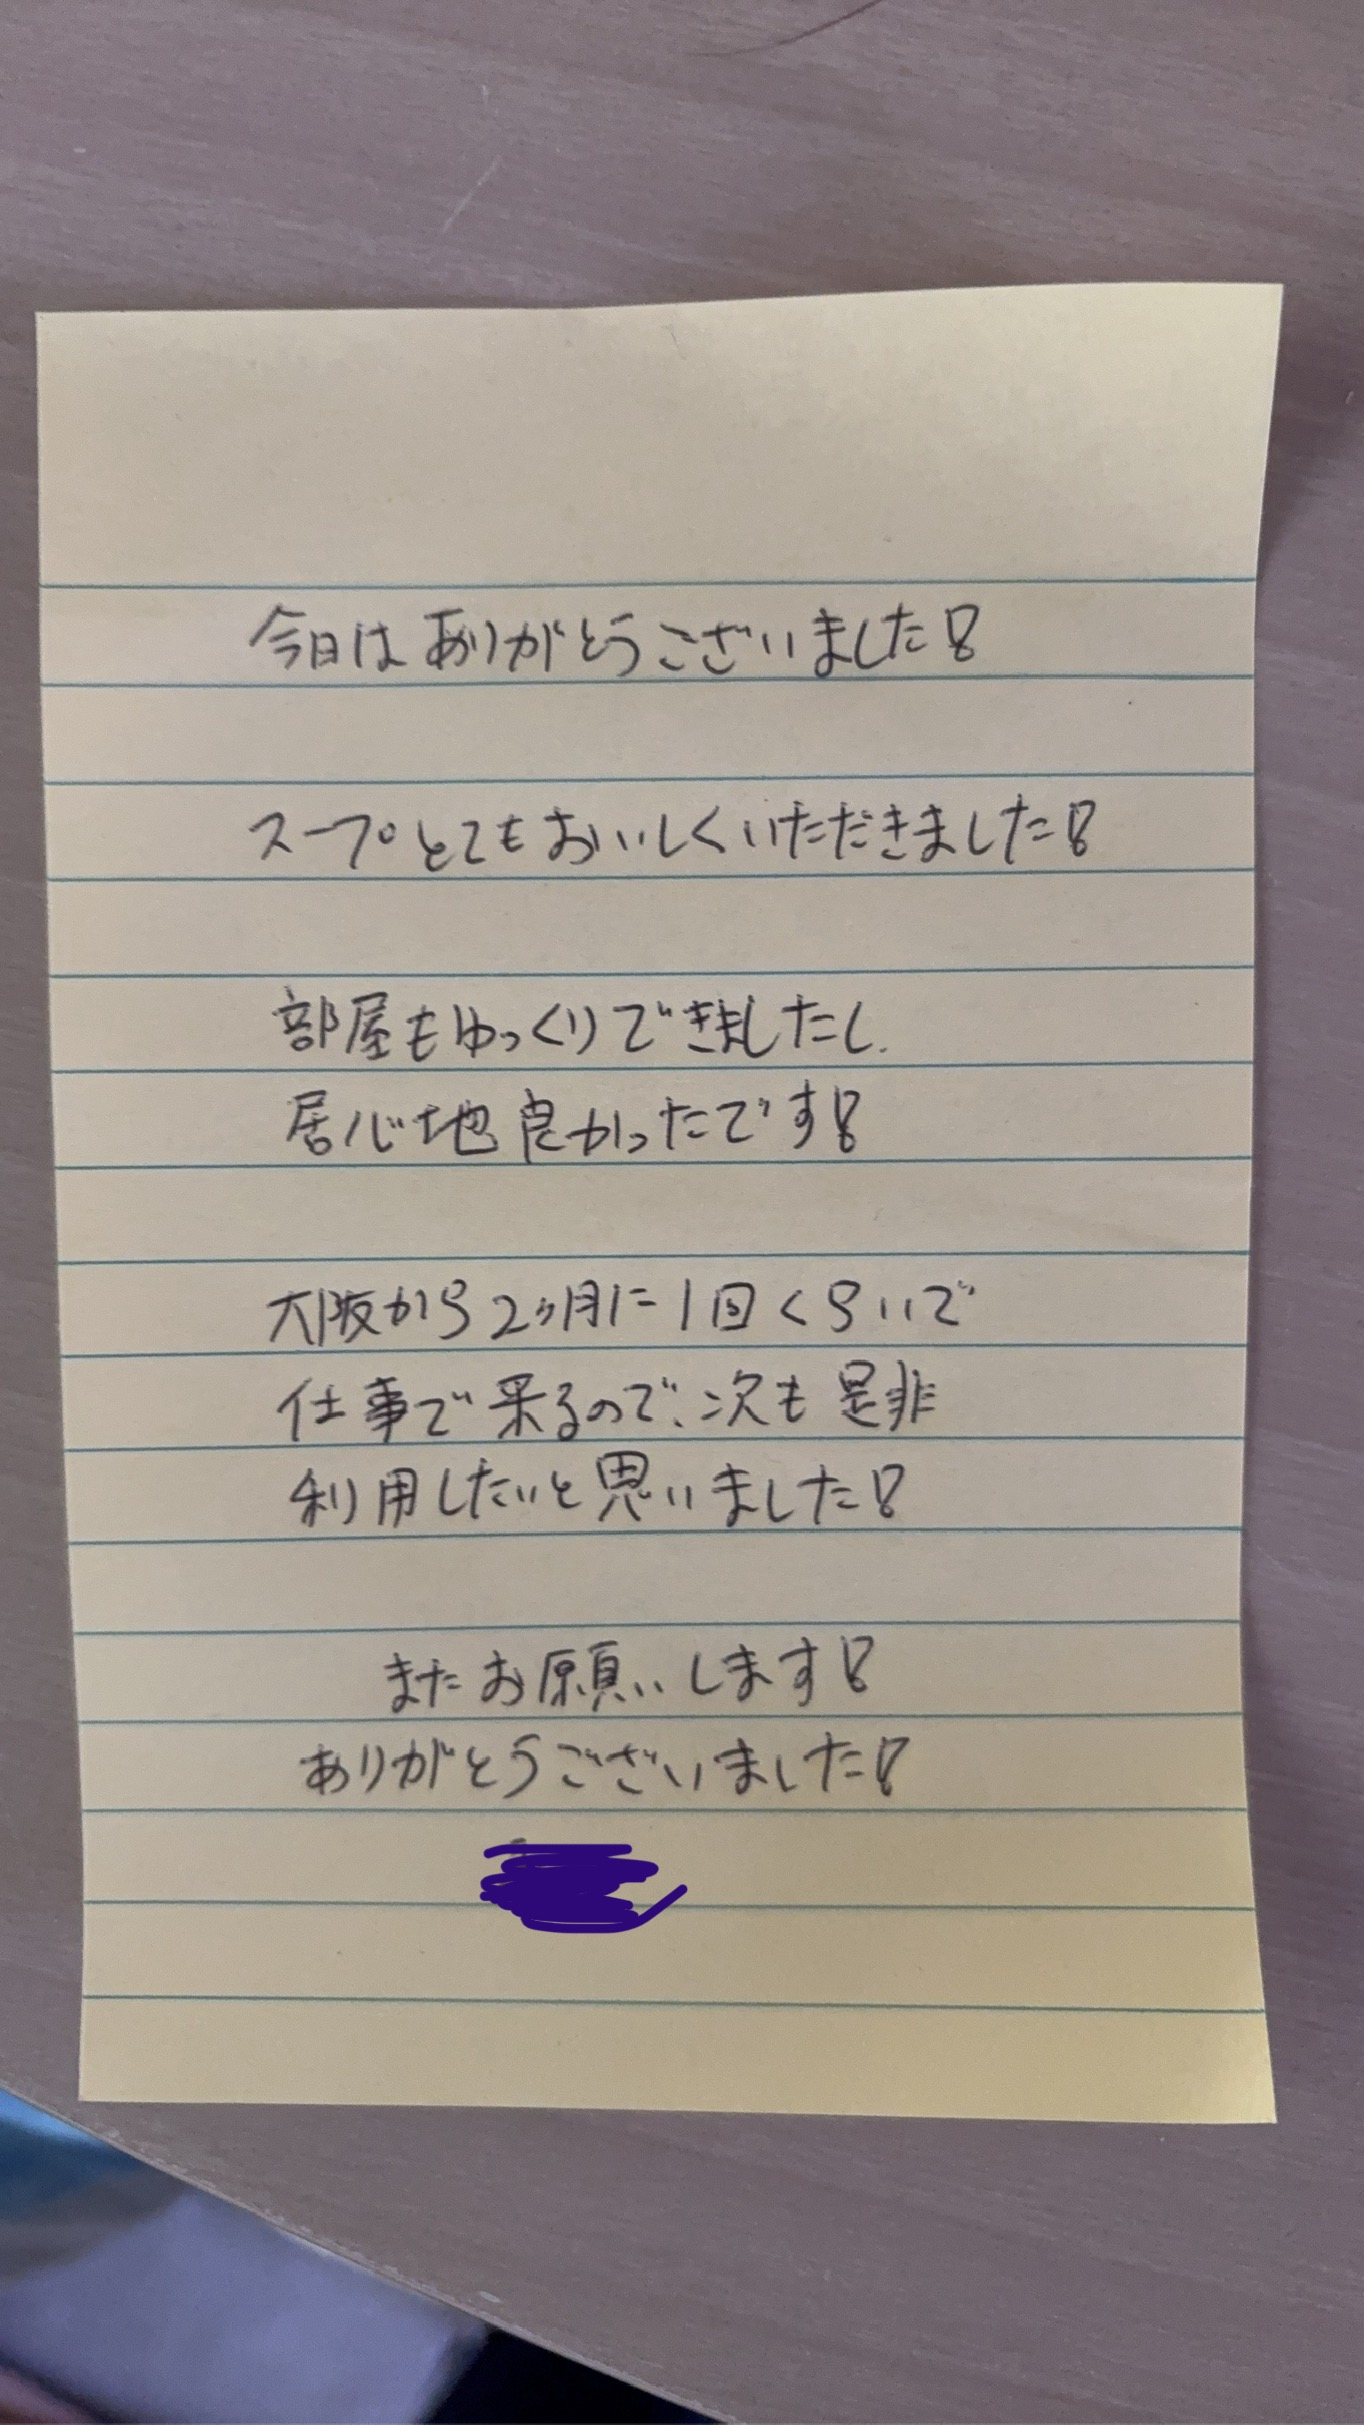 今日はありがとうございました!
スープとてもおいしくいただきました!
部屋もゆっくりできましたし、
居心地良かったです!
大阪から2ヶ月に1回くらいで
仕事で来るので、次も是非
利用したいと思いました!
またお願いします!
ありがとうございました!